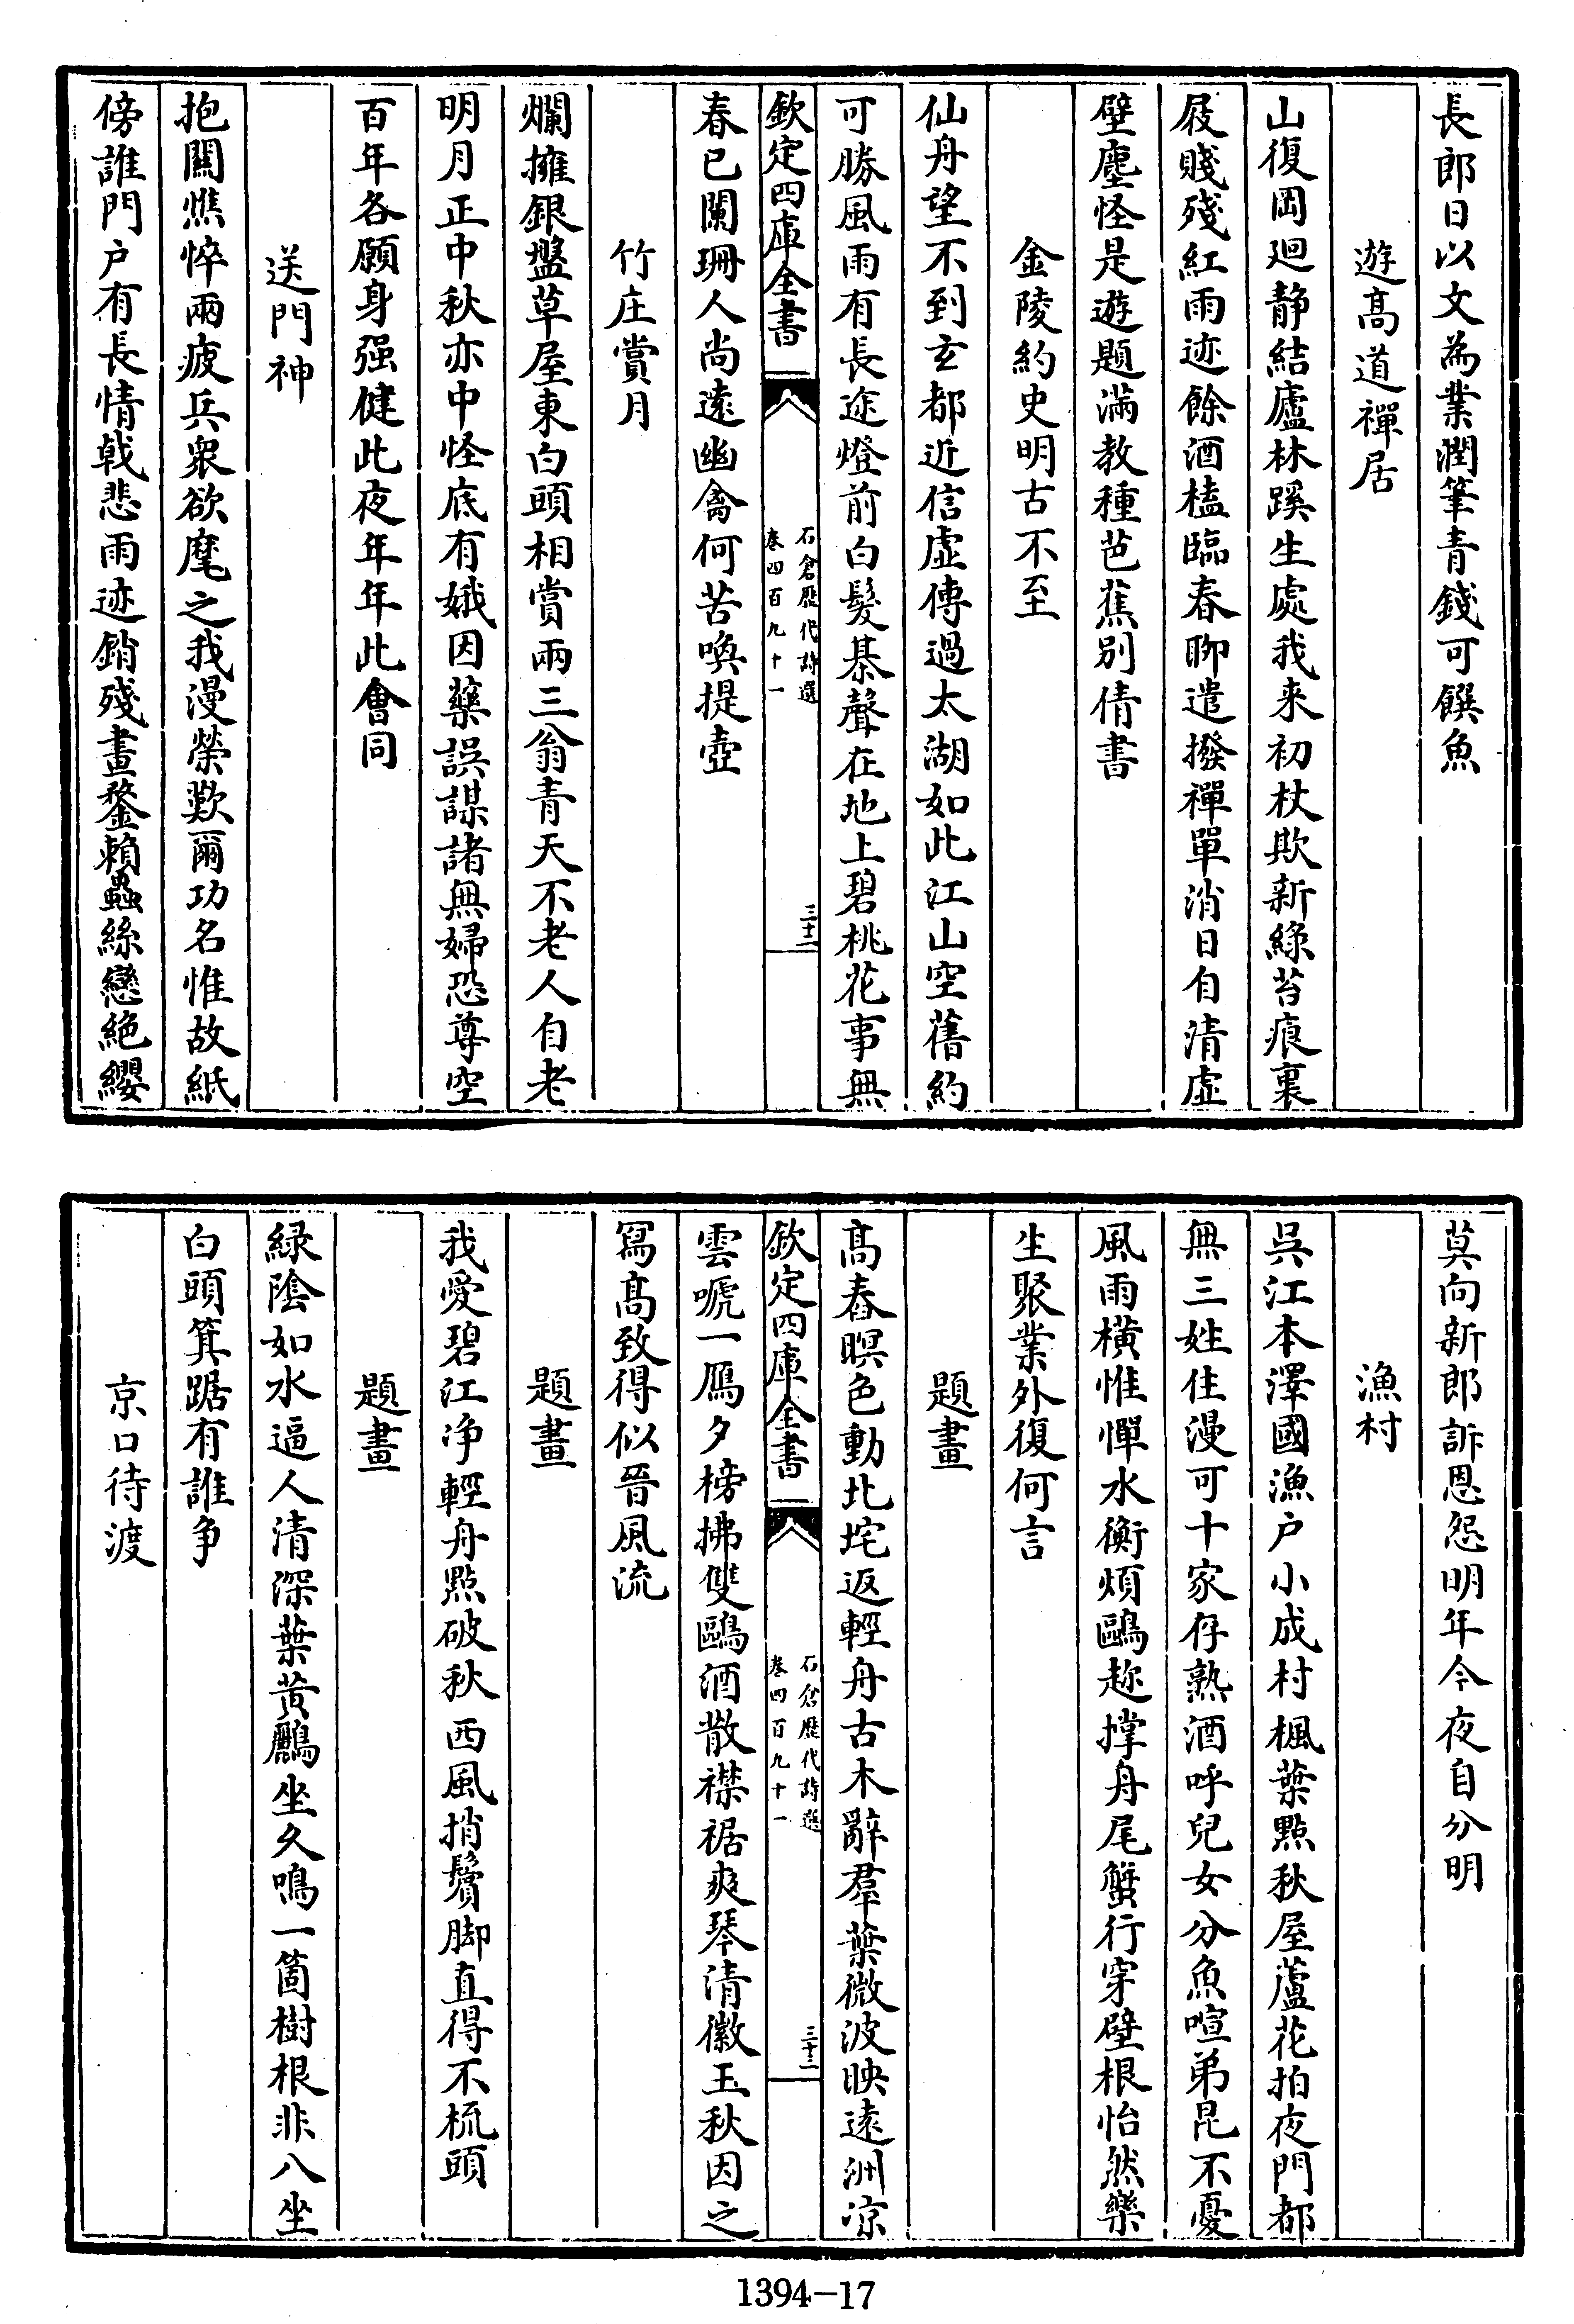 長郎日以文為業潤筆青錢可饌魚
遊高道禪居
山復岡迴静結廬林蹊生處我来初杖欺新綠苔痕裏
屐賤殘紅雨迹餘酒榼臨春聊遣撥禪單消日自清虛
壁塵怪是遊題滿教種芭蕉别倩書
金陵約史明古不至
仙舟望不到玄都近信虛傳過太湖如此江山空舊約
可勝風雨有長途燈前白髮棊聲在地上碧桃花事無
欽定四庫全書
石倉歷代詩選
卷四百九十一
三十二
春已闌珊人尚遠幽禽何苦喚提壺
竹庄賞月
爛擁銀盤草屋東白頭相賞兩三翁青天不老人自老
明月正中秋亦中怪底有娥因藥誤謀諸無婦恐尊空
百年各願身强健此夜年年此會同
送門神
抱關憔悴兩疲兵衆欲麾之我漫榮歎爾功名惟故紙
傍誰門户有長情戟悲雨迹銷殘畫鍪賴蟲絲戀絶纓
莫向新郎訴恩怨明年今夜自分明
漁村
吳江本澤國漁户小成村楓葉點秋屋蘆花拍夜門都
無三姓住漫可十家存熟酒呼兒女分魚喧弟昆不憂
風雨橫惟憚水衡煩鷗趂撑舟尾蟹行穿壁根怡然樂
生聚業外復何言
題畫
高舂暝色動北垞返輕舟古木辭羣葉微波映遠洲凉
欽定四庫全書
石倉歷代詩選
卷四百九十一
三十三
雲唬一鴈夕榜拂雙鷗酒散襟裾爽琴清徽玉秋因之
寫高致得似晉風流
題畫
我愛碧江净輕舟點破秋西風捎鬢脚直得不梳頭
題畫
緑陰如水逼人清深葉黄鸝坐久鳴一箇樹根非八坐
白頭箕踞有誰争
京口待渡
1394-17